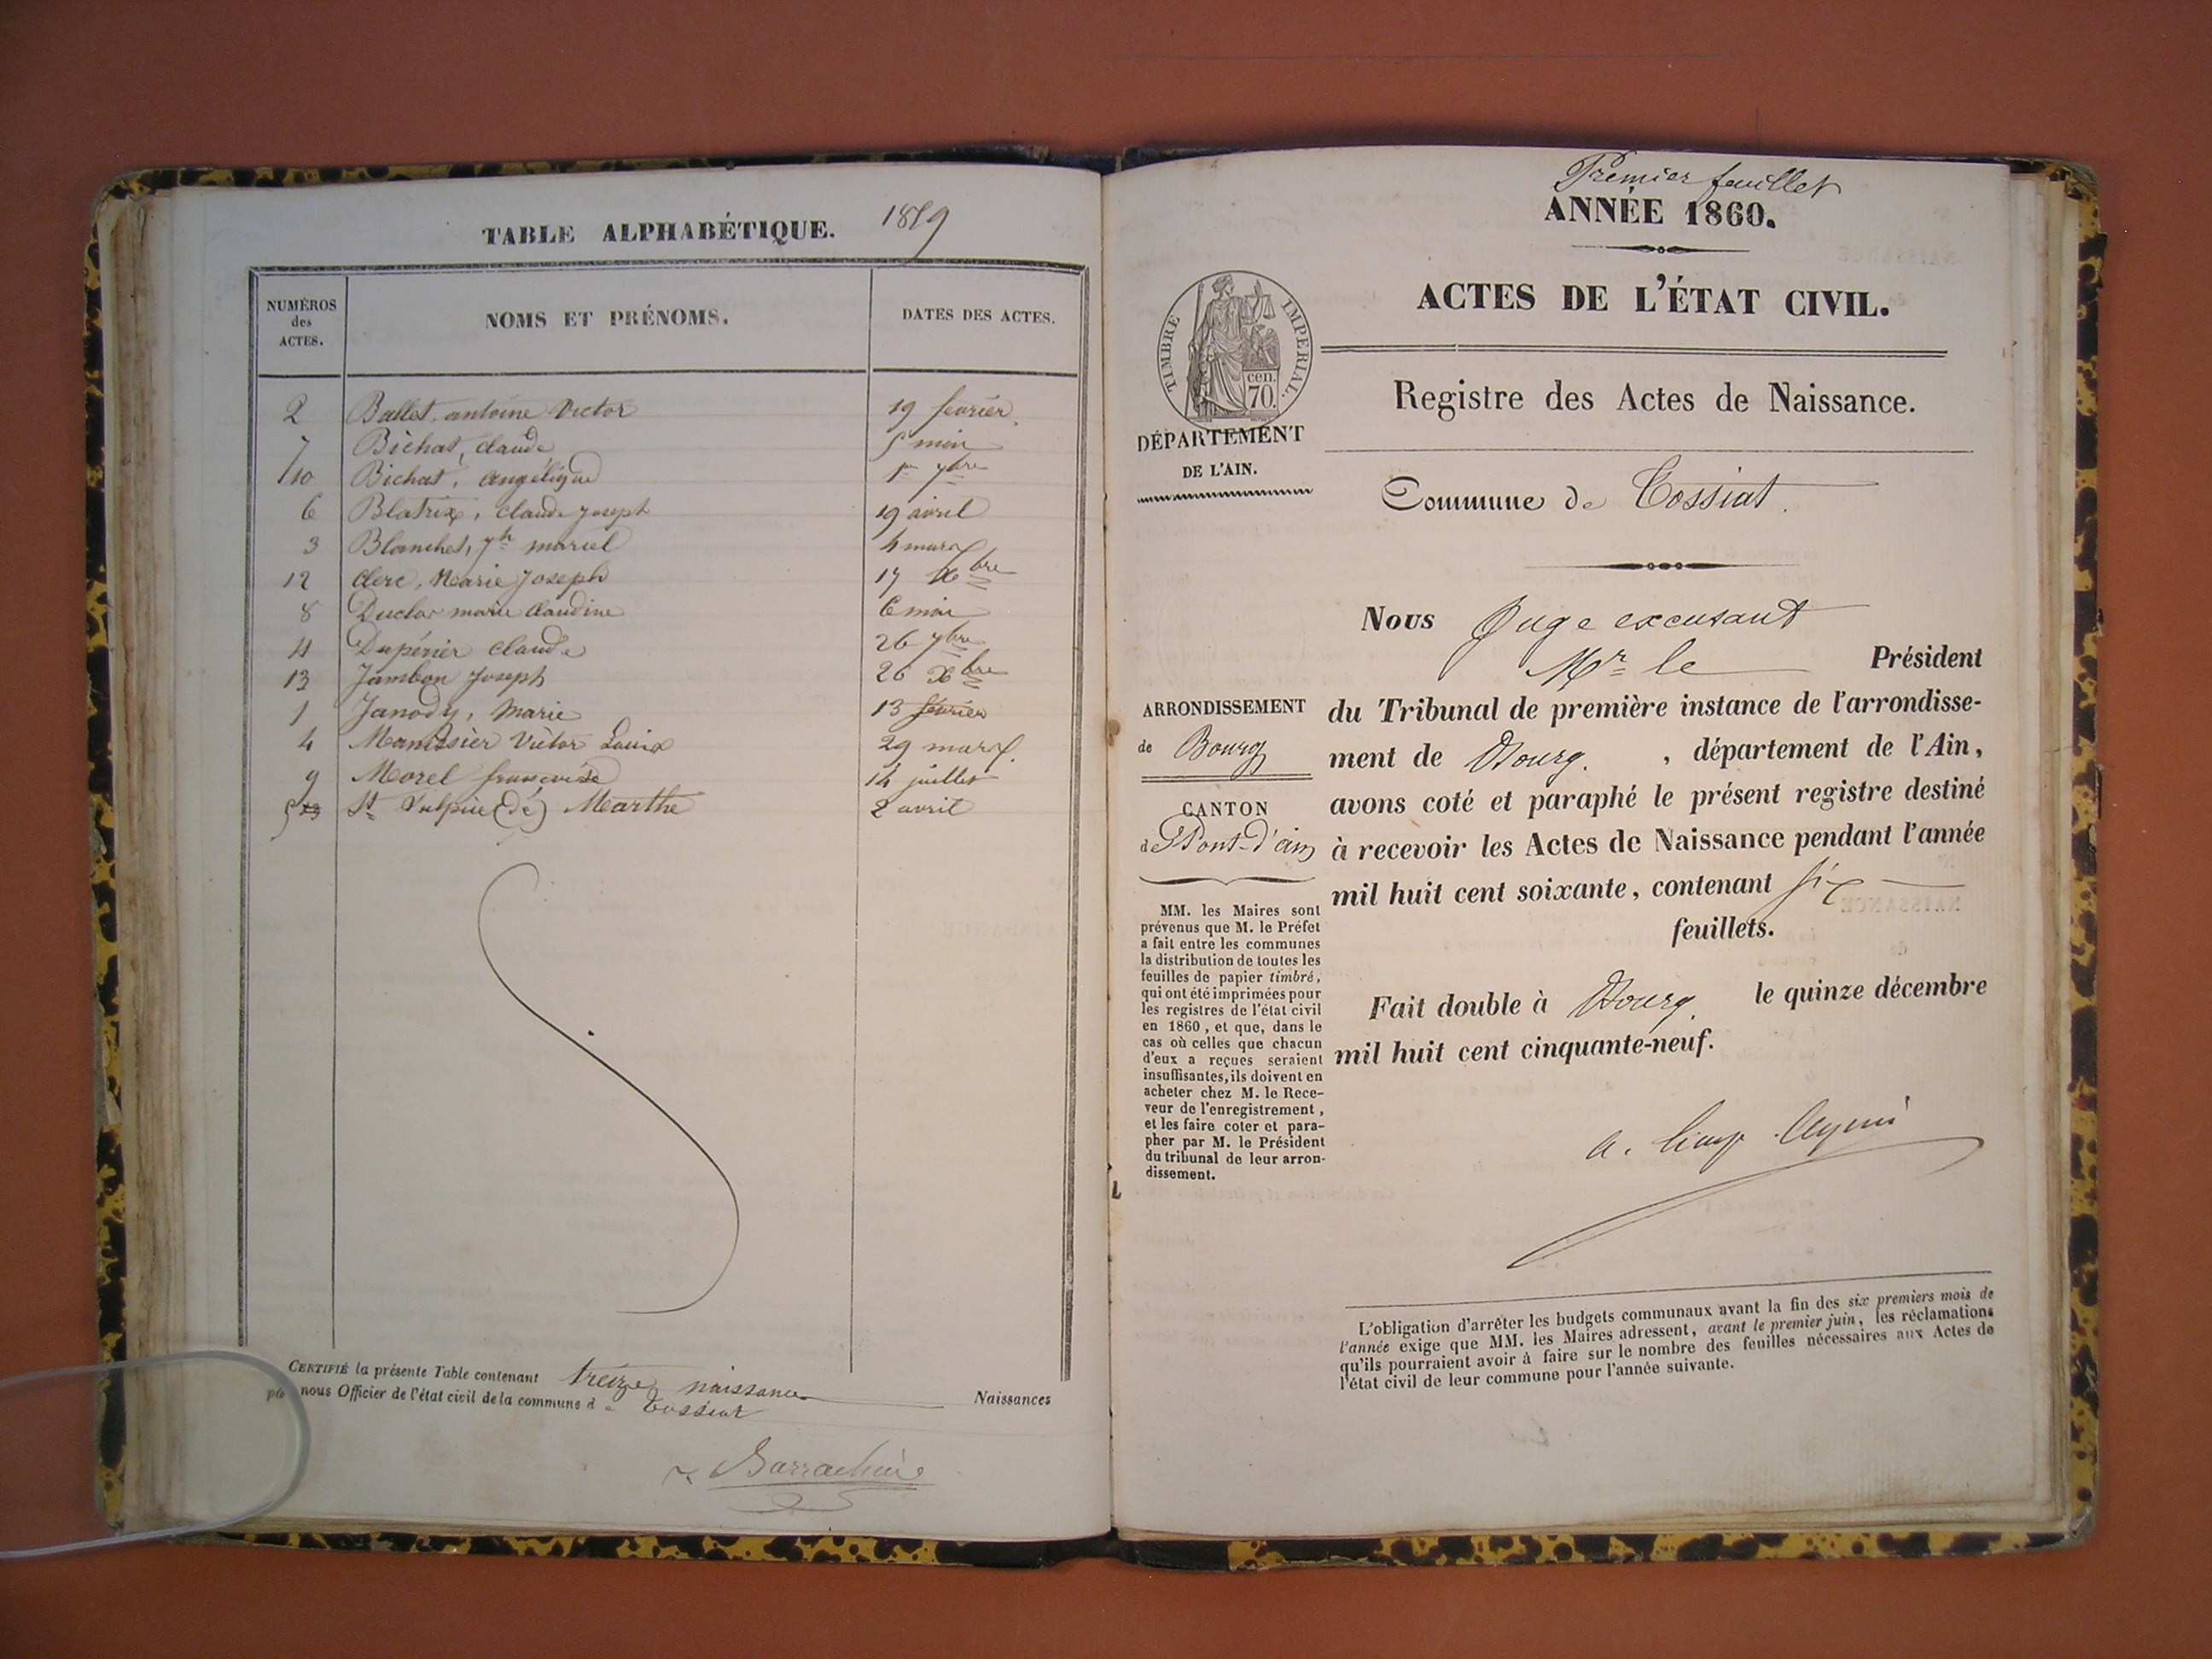 TABLE ALPHABÉTIQUE. 1859
NUMÉROS des ACTES.
NOMS ET PRÉNOMS.
DATES DES ACTES.
2 Ballet, antoine Victor 19 fevrier
7 Bichat, Claude 5 mai
10 Bichat, Angélique 1er 7bre
6 Blatrix, Claude Joseph 19 avril
3 Blanchet, Jh marcel 4 mars
12 Clerc, Marie Joseph 17 Xbre
8 Duclos marie Claudine 6 mai
11 Dupérier Claude 26 7bre
13 Jambon Joseph 26 Xbre
1 Janody, Marie 13 février
4 Manissier Victor Louis 29 mars
9 Morel françoise 14 juillet
5 St Sulpice (de) Marthe 2 avril
CERTIFIÉ la présente Table contenant treize naissances Naissances
par nous Officier de l'état civil de la commune de Tossiat
Barrachin
Premier feuillet
ANNÉE 1860.
ACTES DE L'ÉTAT CIVIL.
TIMBRE IMPERIAL.
70 cen.
Registre des Actes de Naissance.
DÉPARTEMENT
DE L'AIN.
Commune de Tossiat.
Nous Juge excusant
Mr le Président
du Tribunal de première instance de l'arrondisse-
ment de Bourg. , département de l'Ain,
avons coté et paraphé le présent registre destiné
à recevoir les Actes de Naissance pendant l'année
mil huit cent soixante, contenant six
feuillets.
Fait double à Bourg. le quinze décembre
mil huit cent cinquante-neuf.
ARRONDISSEMENT
de Bourg
CANTON
de Pont-d'ain
MM. les Maires sont
prévenus que M. le Préfet
a fait entre les communes
la distribution de toutes les
feuilles de papier timbré,
qui ont été imprimées pour
les registres de l'état civil
en 1860, et que, dans le
cas où celles que chacun
d'eux a reçues seraient
insuffisantes, ils doivent en
acheter chez M. le Rece-
veur de l'enregistrement,
et les faire coter et para-
pher par M. le Président
du tribunal de leur arron-
dissement.
L'obligation d'arrêter les budgets communaux avant la fin des six premiers mois de
l'année exige que MM. les Maires adressent, avant le premier juin, les réclamations
qu'ils pourraient avoir à faire sur le nombre des feuilles nécessaires aux Actes de
l'état civil de leur commune pour l'année suivante.